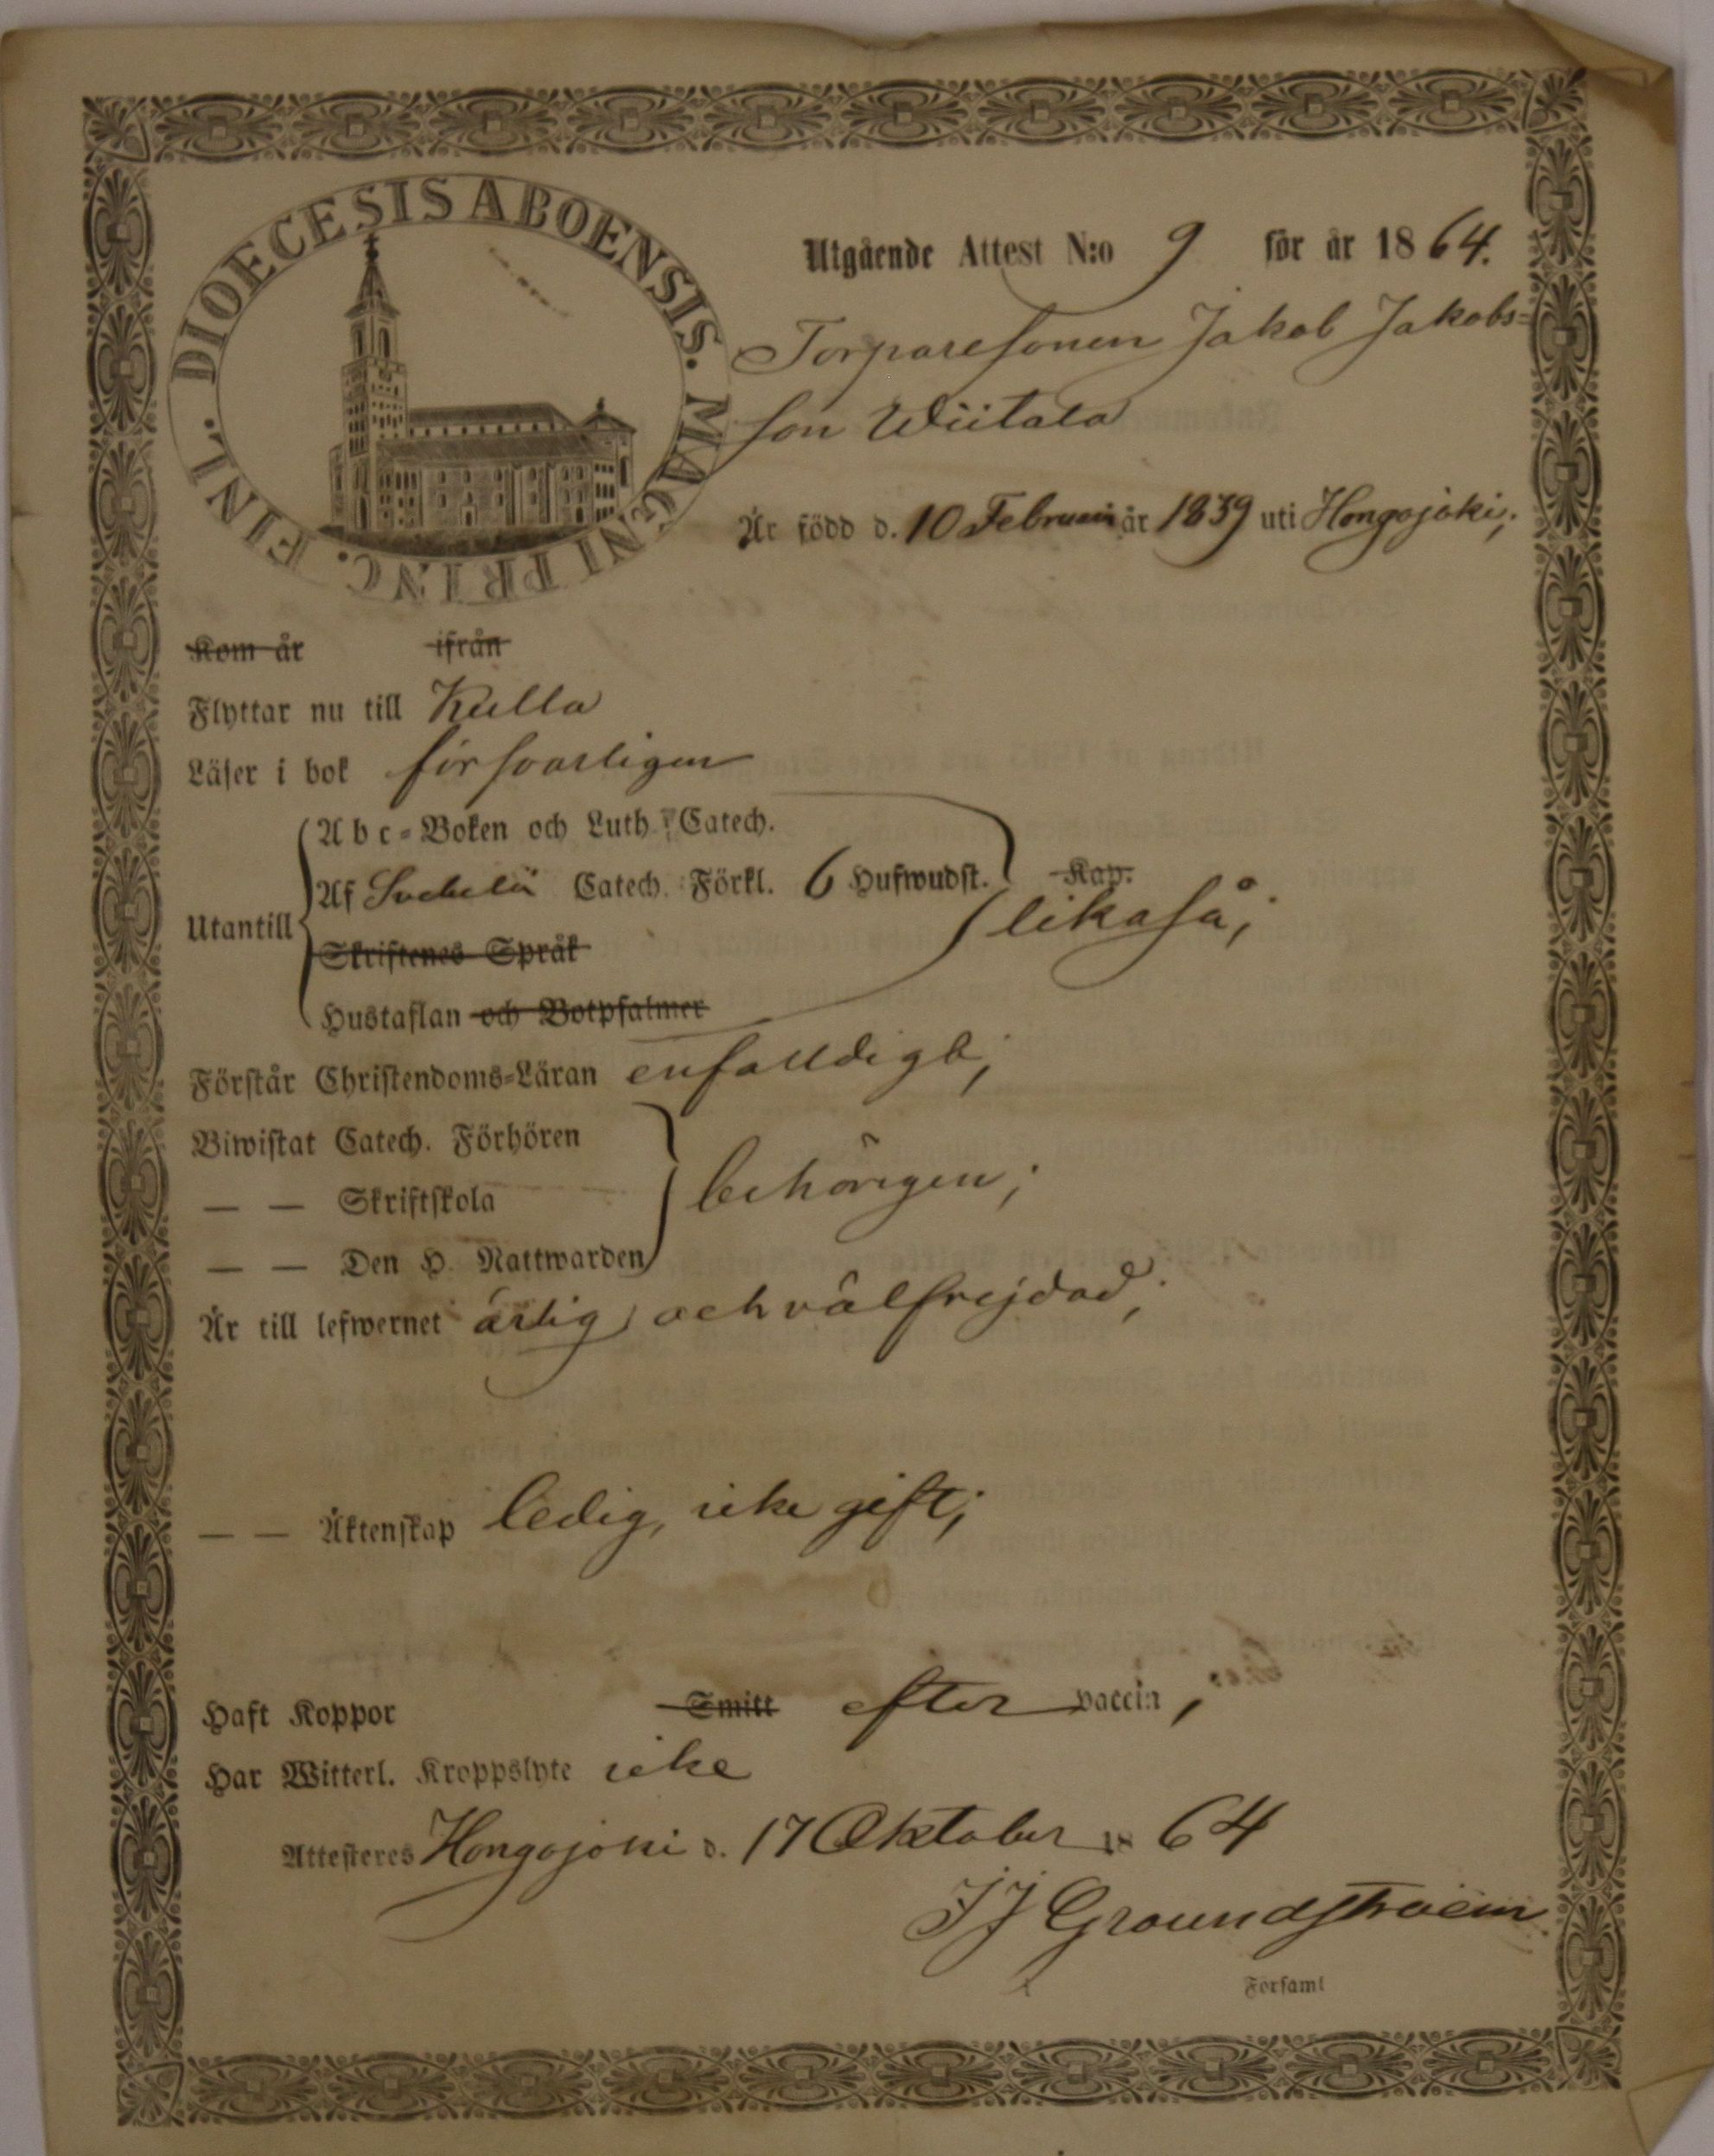 DIOECESIS ABOENSIS. MAGNI PRINC. FINL.
Utgående Attest N:o 9 för år 1864.
Torparesonen Jakob Jakobs=
son Wiitala
Är född d. 10 Februari år 1839 uti Hongojoki;
Kom år ifrån
Flyttar nu till Kulla
Läser i bok försvarligen
Abc=Boken och Luth. Catech.
Af Svebelii Catech. Förkl. 6 Hufwudst. Kap.
Utantill likaså;
Skriftenes Språk
Hustaflan och Botpsalmer
Förstår Christendoms=Läran enfalldigt;
Biwistat Catech. Förhören
— — Skriftskola behörigen;
— — Den H. Nattwarden
Är till lefwernet ärlig och välfrejdad;
— — Äktenskap ledig, icke gift;
Haft Koppor Smitt efter vaccin,
Har Witterl. Kroppslyte icke
Attesteres Hongojoki d. 17 Oktober 1864
JJ Groundstroem
Församl